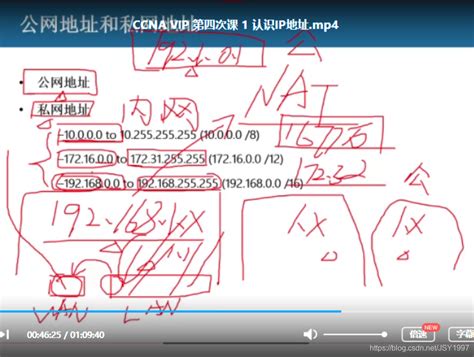 公网地址和私网地址
CCNA VIP 第四次课 1 认识IP地址.mp4
公
• 公网地址
• 私网地址
内网
NAT
–10.0.0.0 to 10.255.255.255 (10.0.0.0 /8)
–172.16.0.0 to 172.31.255.255 (172.16.0.0 /12)
172.32
公
–192.168.0.0 to 192.168.255.255 (192.168.0.0 /16)
192.168.1.XX
1.X
1.X
WAN
LAN
00:46:25 / 01:09:40
倍速
NEW
字幕
https://blog.csdn.net/JSY1997